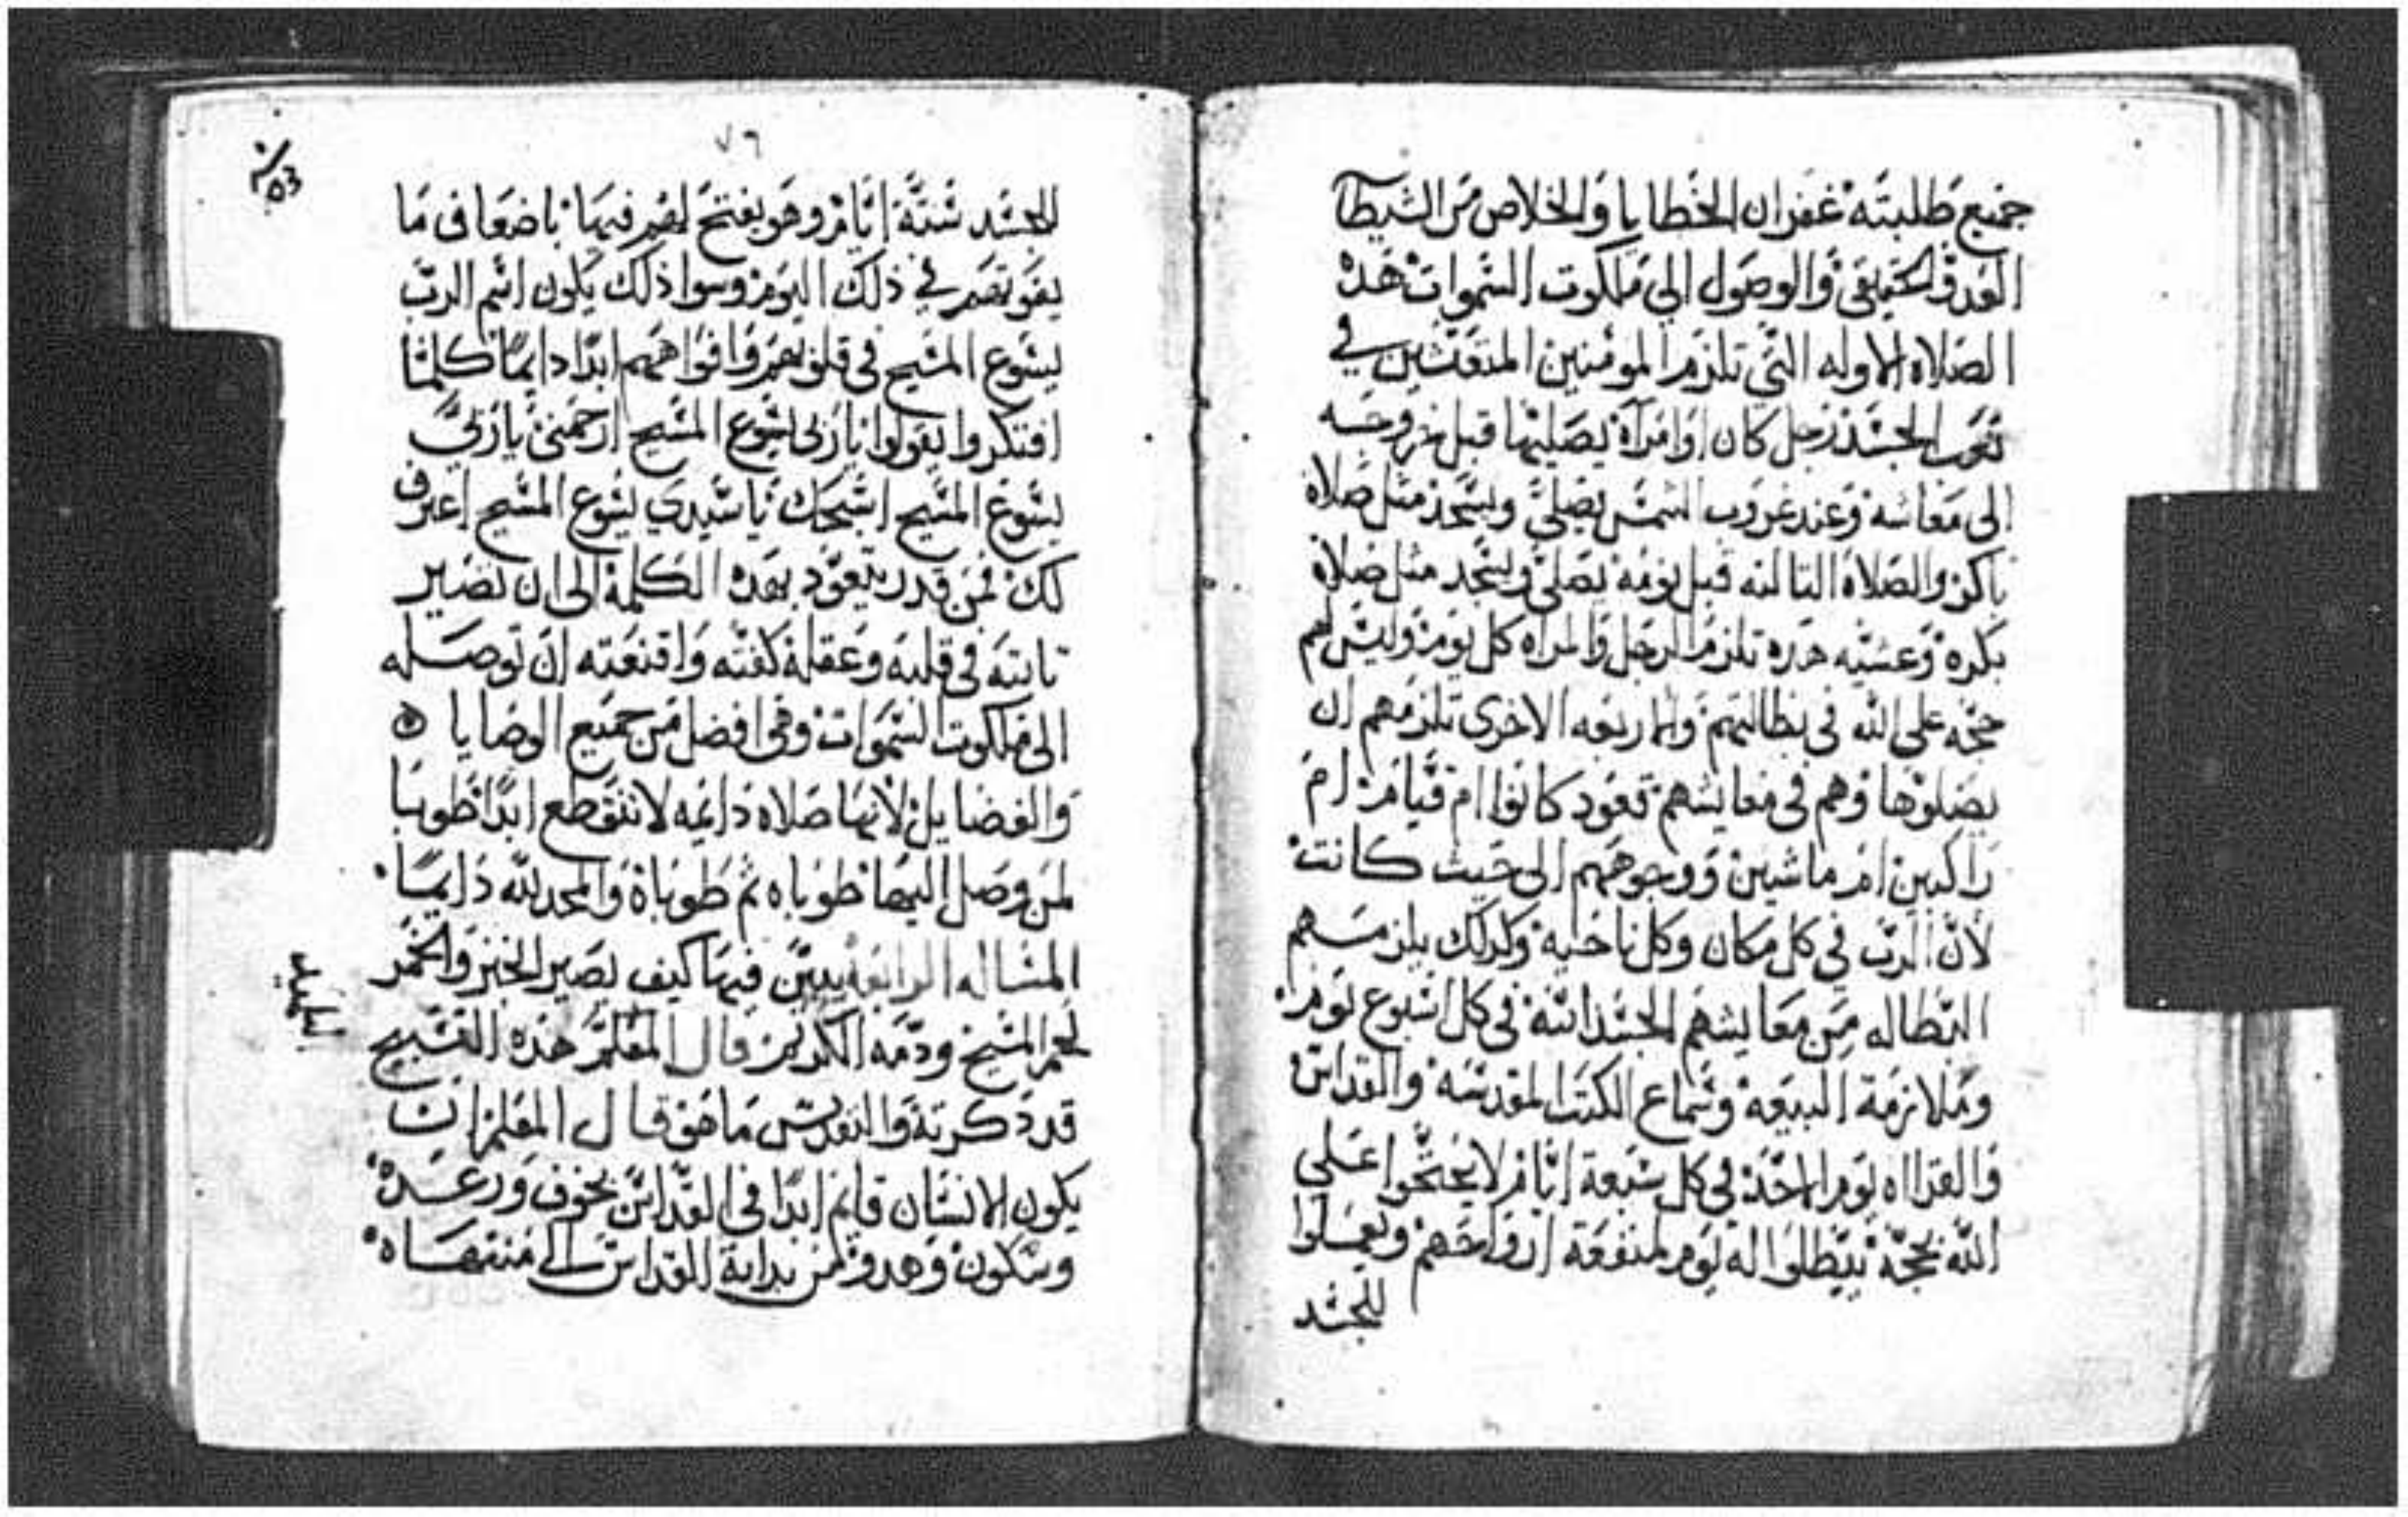 جميع طلبته غفران الخطايا والخلاص من الشيطان
العدو الحقيقى والوصول الي ملكوت السموات هذه
الصلاه الاوله التي تلزم المومنين المتعتين في
تعب الجسد رجل كان او امرآة يصليها قبل خروجه
الى معاشه وعند غروب الشمس يصلي ويسجد مثل صلاة
باكر والصلاة التالته قبل نومه يصلي ويسجد مثل صلاة
بكره وعشيه هده تلزم الرجل والمراه كل يوم وليس لهم
حجه علي الله في بطالتهم والاربعه الاخرى تلزمهم ان
يصلوها وهم في معايشهم قعود كانوا ام قيام ام
راكبين ام ماشيين ووجوههم الى حيث كانت
لان الرب في كل مكان وكل ناحيه وكدلك يلزمهم
البطاله من معايشهم الجسدانيه في كل اسبوع يوم
وملازمة البيعه وسماع الكتب المقدسه والقداس
والقرااه يوم الاحد في كل سبعة ايام لا يحتجوا علي
الله بحجة يبطلوا له يوم لمنفعة ارواحهم ويعملوا
للجسد
٧٦
للجسد ستة ايام وهو يفتح لهم فيها باضعاف ما
يفوتهم في ذلك اليوم وسوا ذلك يكون اسم الرب
يسوع المسيح في قلوبهم وافواههم ابدا دايما كلما
افتكروا يقولوا ياربى يسوع المسيح ارحمني ياربي
يسوع المسيح اسبحك يا سيدي يسوع المسيح اعترف
لك فمن قدر يتعود بهده الكلمة الى ان تصير
تابته في قلبه وعقله كفته واقنعته ان توصله
الى ملكوت السموات وهى افضل من جميع الوصايا
والفضايل لانها صلاه دايمه لا تنقطع ابدا طوبا
لمن وصل اليها طوباه ثم طوباه والمجد لله دايما
المساله الرابعة يبين فيها كيف يصير الخبز والخمر
لحم المسيح ودمه الكريم قال المعلم هذه القسيح
قد ذكرته والتقديس ما هو قال المعلم ان
يكون الانسان قايم ابدا في القداس بخوف ورعده
وسكون وهدو من بداية القداس الى منتهاه